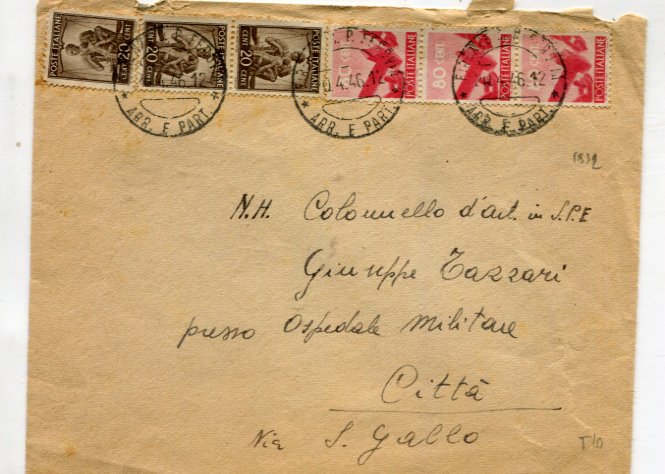 POSTE ITALIANE 20 CENT POSTE ITALIANE 20 CENT POSTE ITALIANE 20 CENT POSTE ITALIANE 80 CENT. POSTE ITALIANE POSTE ITALIANE
4.46.12
ARR. E PART. ARR. E PART. ARR. E PART.
1832
N.H. Colonnello d'art. in S.P.E
Giuseppe Tazzari
presso Ospedale Militare
Città
Via S. Gallo